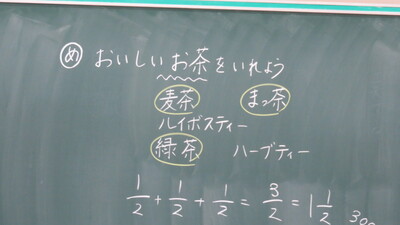 め おいしいお茶をいれよう
麦茶 まっ茶
ルイボスティー
緑茶 ハーブティー
1/2 + 1/2 + 1/2 = 3/2 = 1 1/2